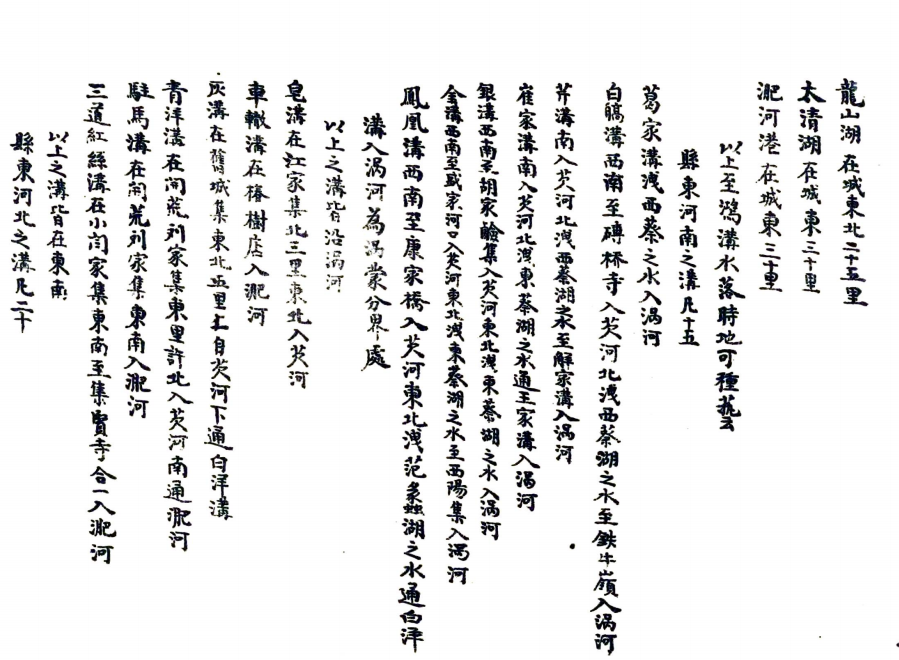 龍山湖在城東北二十五里
太清湖在城東三十里
淝河港在城東三十里
以上至鴻溝水落時地可種蓺云
縣東河南之溝凡十五
葛家溝洩西蔡之水入渦河
白鶴溝西南至磚橋寺入芡河北洩西蔡湖之水至鉄牛嶺入渦河
芥溝南入芡河北洩西蔡湖之水至解家溝入渦河
崔家溝南入芡河北洩東蔡湖之水通王家溝入渦河
銀溝西南至胡家瞼集入芡河東北洩東蔡湖之水入渦河
金溝西南至盛家河口入芡河東北洩東蔡湖之水至西陽集入渦河
鳳凰溝西南至康家橋入芡河東北洩范蟲湖之水通白洋
溝入渦河為渦蒙分界處
以上之溝皆沿渦河
皂溝在江家集北三里東北入芡河
車轍溝在椿樹店入淝河
灰溝在舊城集東北五里上自芡河下通白洋溝
青洋溝在開荒刘家集東里許北入芡河南通淝河
駐馬溝在開荒刘家集東南入淝河
三道紅絲溝在小閆家集東南至集賢寺合一入淝河
以上之溝皆在東南
縣東河北之溝凡二十